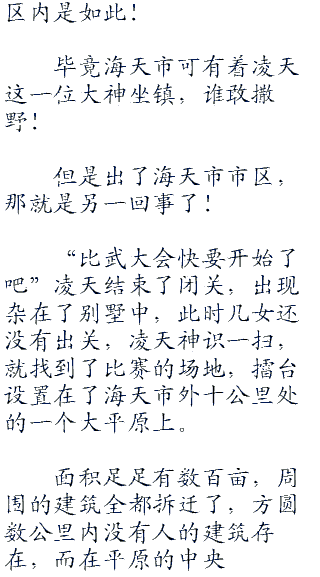 区内是如此！
毕竟海天市可有着凌天
这一位大神坐镇，谁敢撒
野！
但是出了海天市市区，
那就是另一回事了！
“比武大会快要开始了
吧”凌天结束了闭关，出现
杂在了别墅中，此时几女还
没有出关，凌天神识一扫，
就找到了比赛的场地，擂台
设置在了海天市外十公里处
的一个大平原上。
面积足足有数百亩，周
围的建筑全都拆迁了，方圆
数公里内没有人的建筑存
在，而在平原的中央